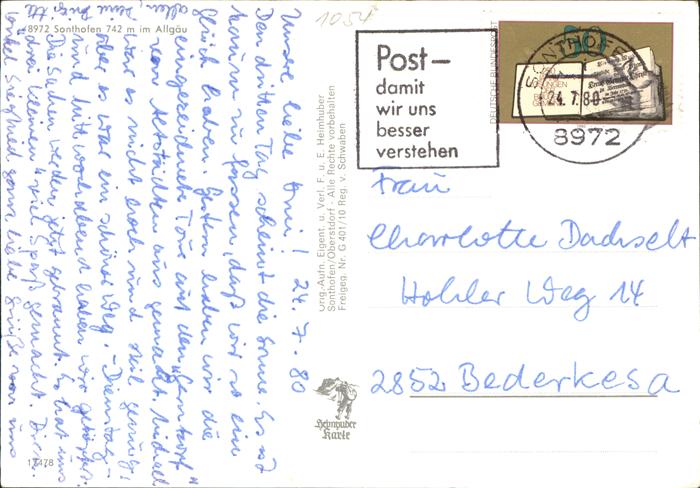 1054
8972 Sonthofen 742 m im Allgäu
Unsere liebe Omi! 24.7.80
Den dritten Tag scheint die Sonne. Es ist
kaum zu fassen, daß wir so ein
Glück haben. Gestern haben wir die
eingezeichnete Tour auf den
von Altstädten aus gemacht. Michael
war es nicht hoch und steil genug,
aber es war ein schöner Weg. – Dienstag –
und Mittwochabend haben wir gekegelt.
Die Sachen werden jetzt gebraucht. Es hat uns
drei Kleinen viel Spaß gemacht. Dir u.
Onkel Siegfried ganz liebe Grüße von uns
allen Deine Brigitte
Orig.-Aufn. Eigent. u. Verl. F. u. E. Heimhuber
Sonthofen/Oberstdorf - Alle Rechte vorbehalten
Freigeg. Nr. G 401/10 Reg. v. Schwaben
Heimhuber
Karte
17478
Post –
damit
wir uns
besser
verstehen
DEUTSCHE BUNDESPOST
50
SONTHOFEN
24.7.80
8972
Frau
Charlotte Dachselt
Hohler Weg 14
2852 Bederkesa